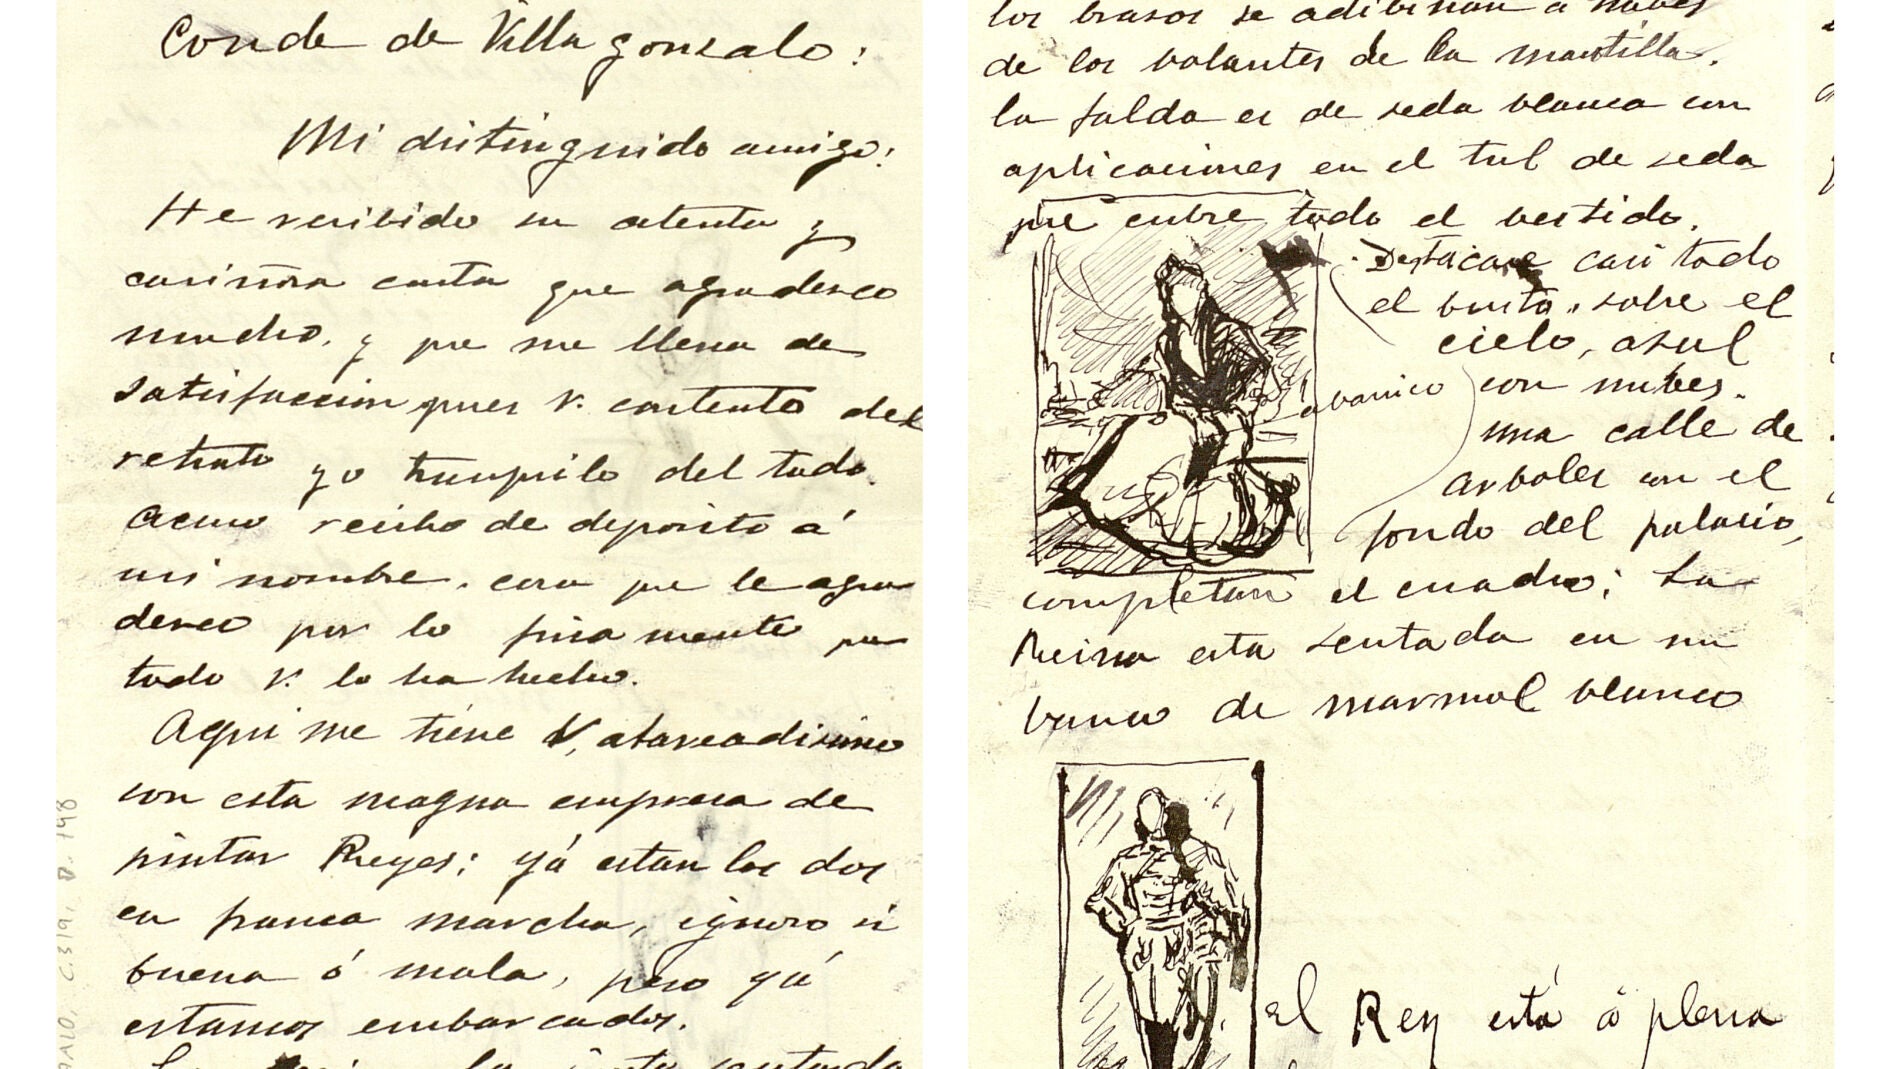 Conde de Villagonzalo:
Mi distinguido amigo:
He recibido su atenta y
carisima carta que agradesco
mucho, y que me llena de
satisfaccion pues V. contento del
retrato yo tranquilo del todo.
Acuso recibo de deposito á
mi nombre, cosa que le agra
desco por lo fina mente que
todo V. lo ha hecho.
Aqui me tiene V, atareadisimo
con esta magna empresa de
pintar Reyes: yá estan los dos
en franca marcha, ignoro si
buena ó mala, pero yá
estamos embarcados.
los brasos se adibinan a trabes
de los volantes de la mantilla.
la falda es de seda blanca con
aplicaciones en el tul de seda
que cubre todo el vestido.
Destacase casi todo
el busto, sobre el
cielo, asul
abanico
con nubes.
una calle de
arboles con el
fondo del palacio,
completan el cuadro; La
Reina esta sentada en un
banco de marmol blanco
el Rey está á plena